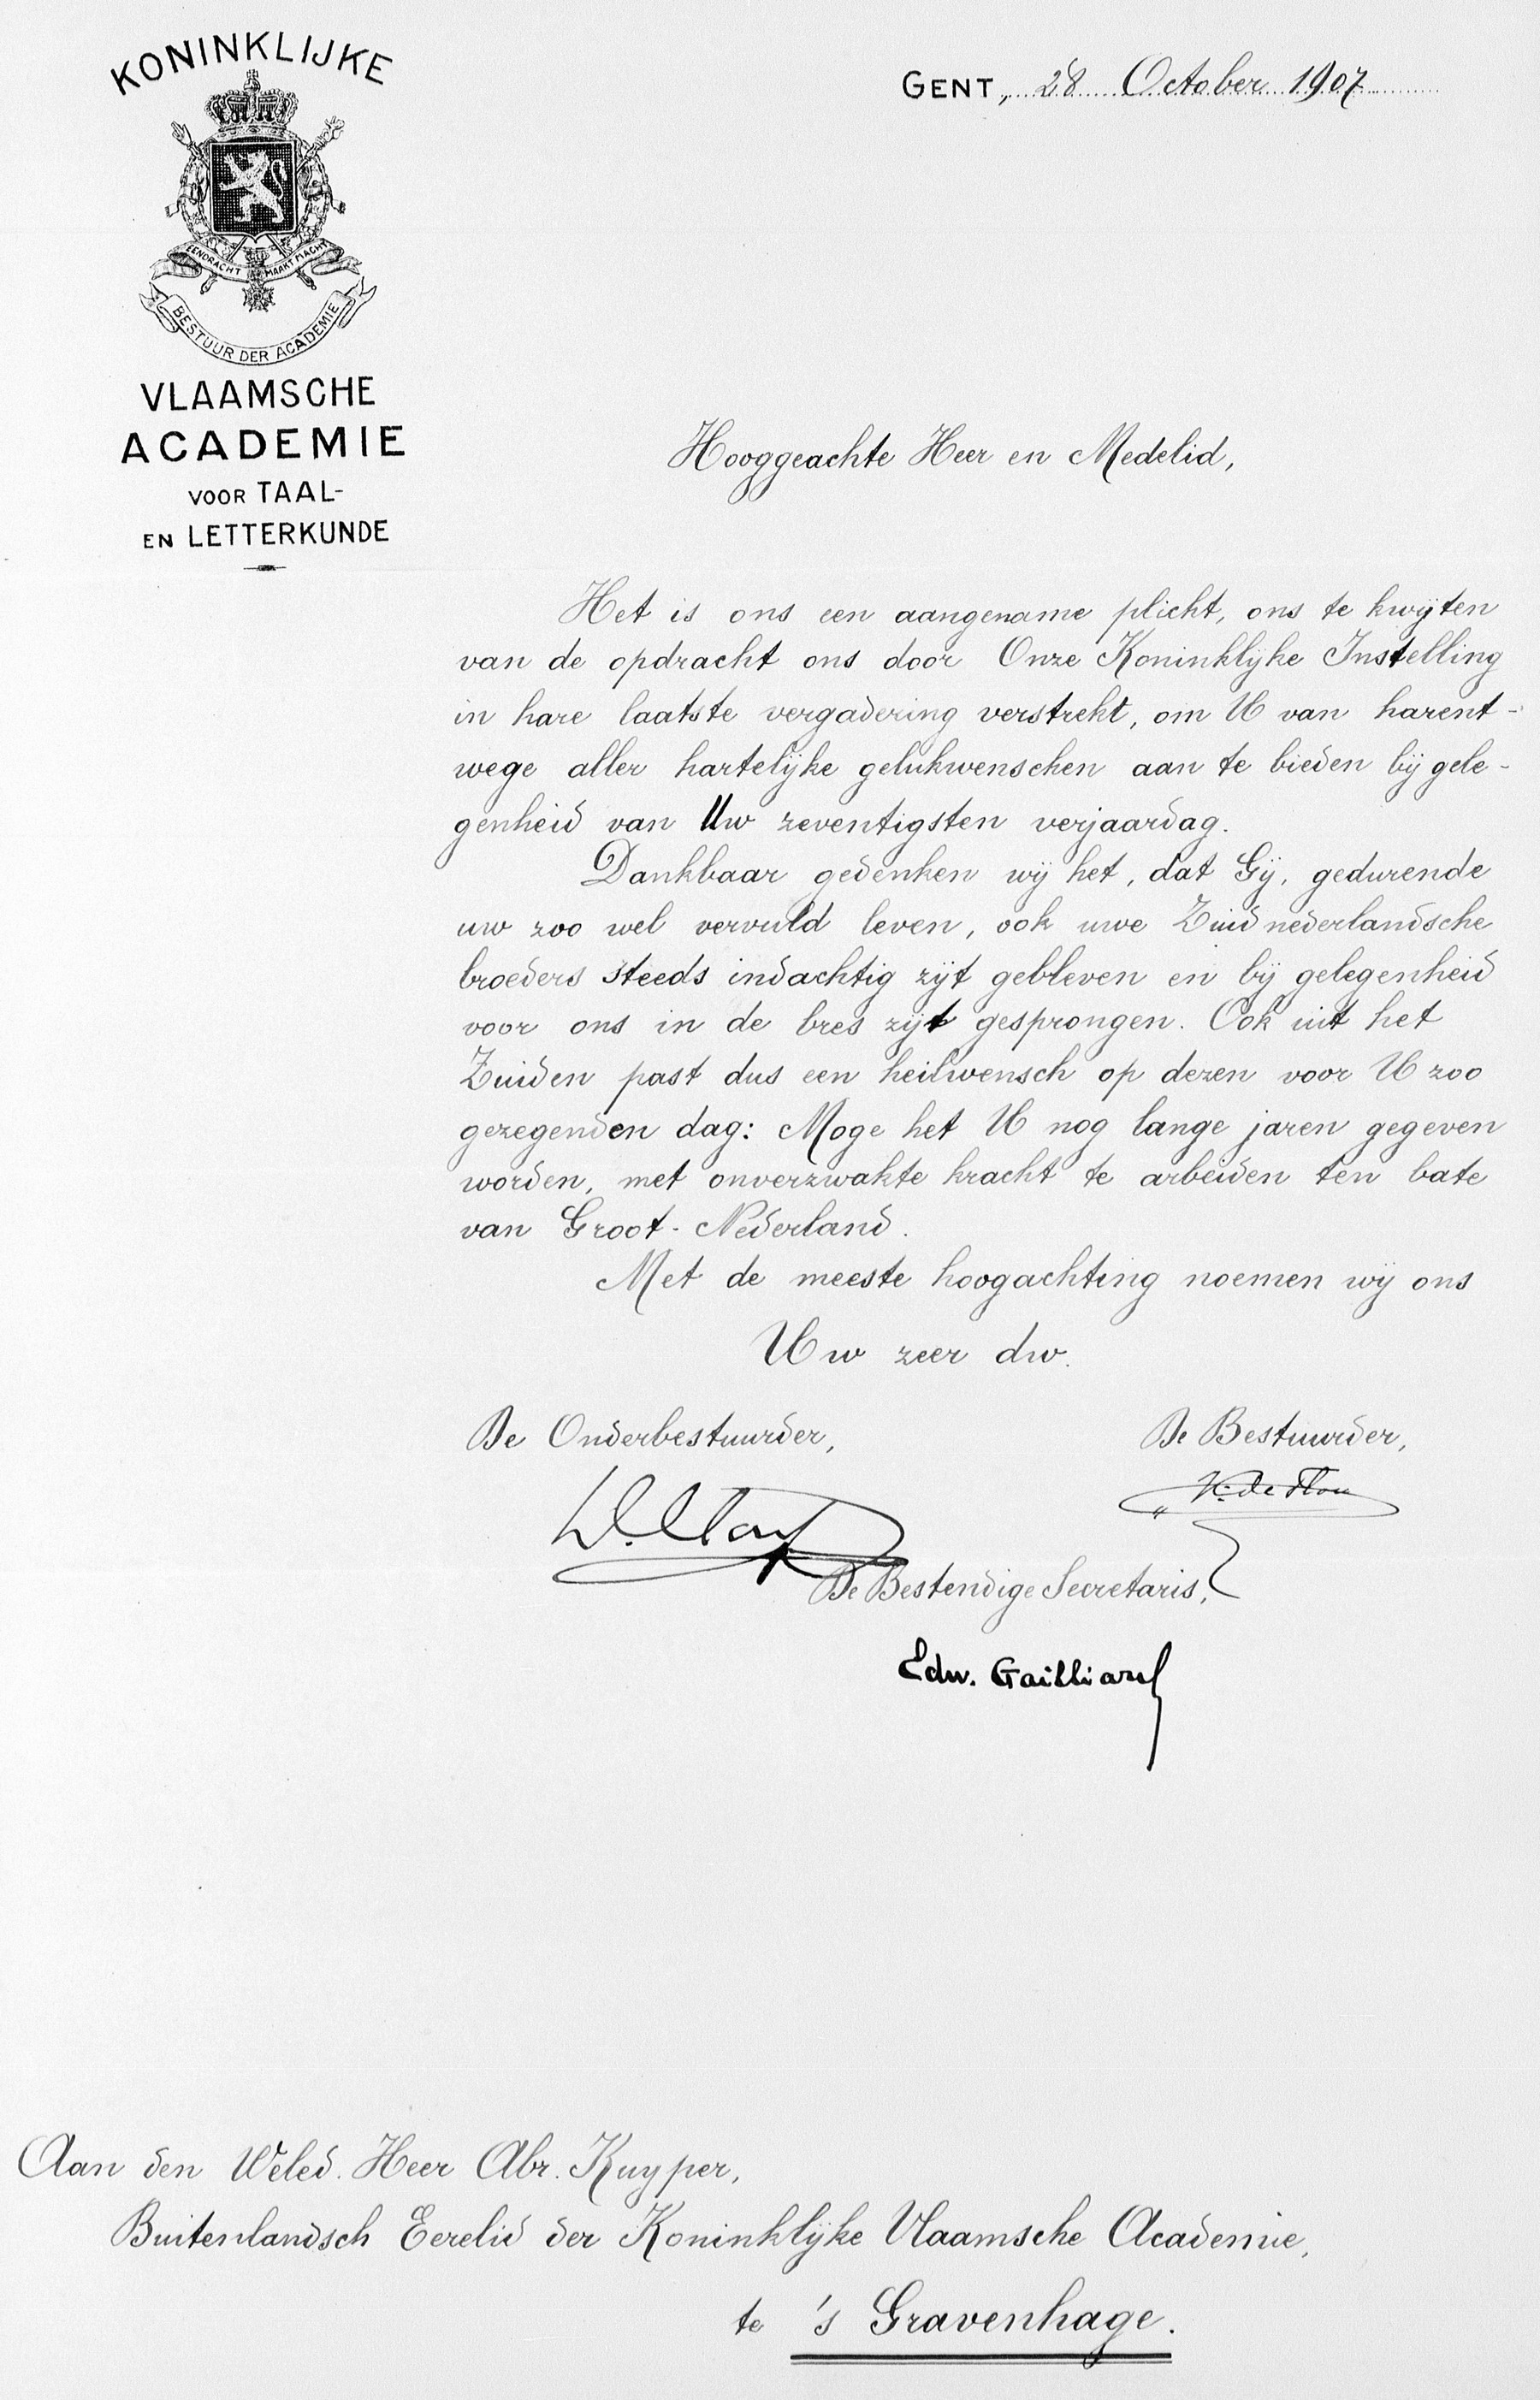 KONINKLIJKE
EENDRACHT MAAKT MACHT
BESTUUR DER ACADEMIE
VLAAMSCHE
ACADEMIE
VOOR TAAL-
EN LETTERKUNDE
GENT, 28 October 1907
Hooggeachte Heer en Medelid,
Het is ons een aangename plicht, ons te kwijten
van de opdracht ons door Onze Koninklijke Instelling
in hare laatste vergadering verstrekt, om U van harent-
wege aller hartelijke gelukwenschen aan te bieden bij gele-
genheid van Uw zeventigsten verjaardag.
Dankbaar gedenken wij het, dat Gij, gedurende
uw zoo wel vervuld leven, ook uwe Zuidnederlandsche
broeders steeds indachtig zijt gebleven en bij gelegenheid
voor ons in de bres zijt gesprongen. Ook uit het
Zuiden past dus een heilwensch op dezen voor U zoo
gezegenden dag: Moge het U nog lange jaren gegeven
worden, met onverzwakte kracht te arbeiden ten bate
van Groot-Nederland.
Met de meeste hoogachting noemen wij ons
Uw zeer dw.
De Onderbestuurder,
De Bestuurder,
K. de Flou
De Bestendige Secretaris,
Edw. Gailliard
Aan den Weled. Heer Abr. Kuyper,
Buitenlandsch Eerelid der Koninklijke Vlaamsche Academie,
te 's Gravenhage.